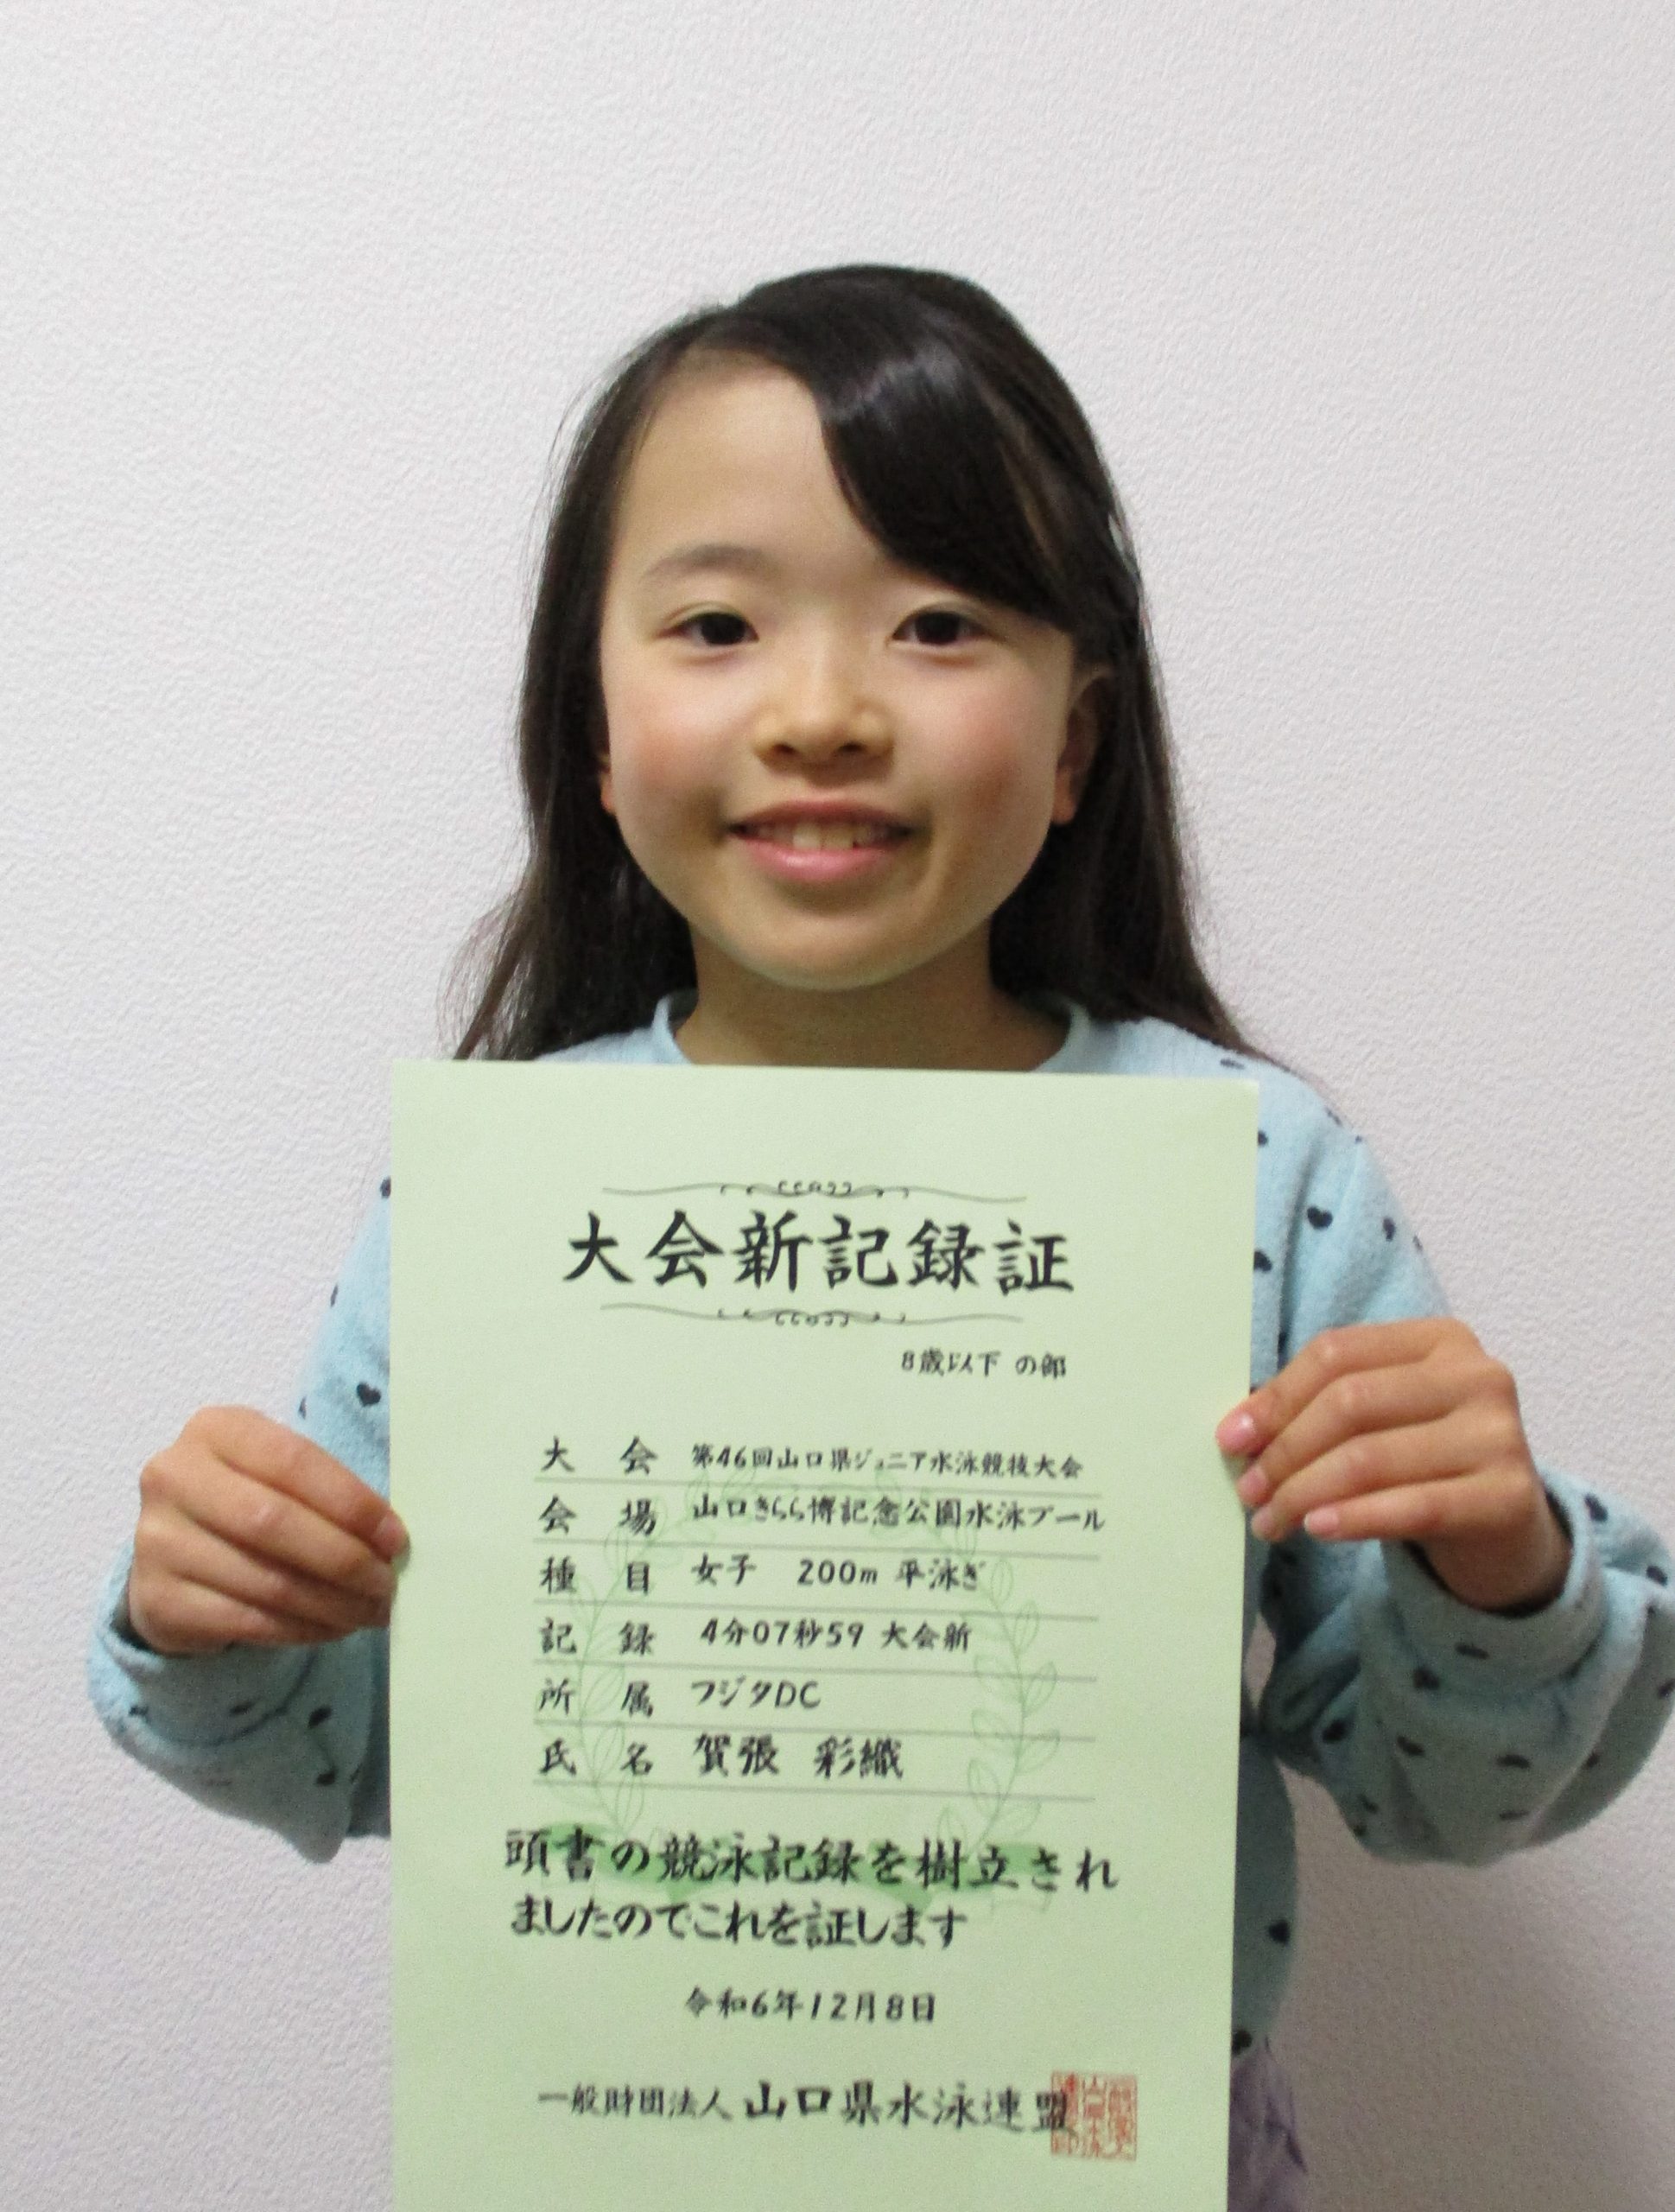 大会新記録証
8歳以下 の部
大会 第46回山口県ジュニア水泳競技大会
会場 山口きらら博記念公園水泳プール
種目 女子 200m 平泳ぎ
記録 4分07秒59 大会新
所属 フジタDC
氏名 賀張 彩織
頭書の競泳記録を樹立され
ましたのでこれを証します
令和6年12月8日
一般財団法人 山口県水泳連盟